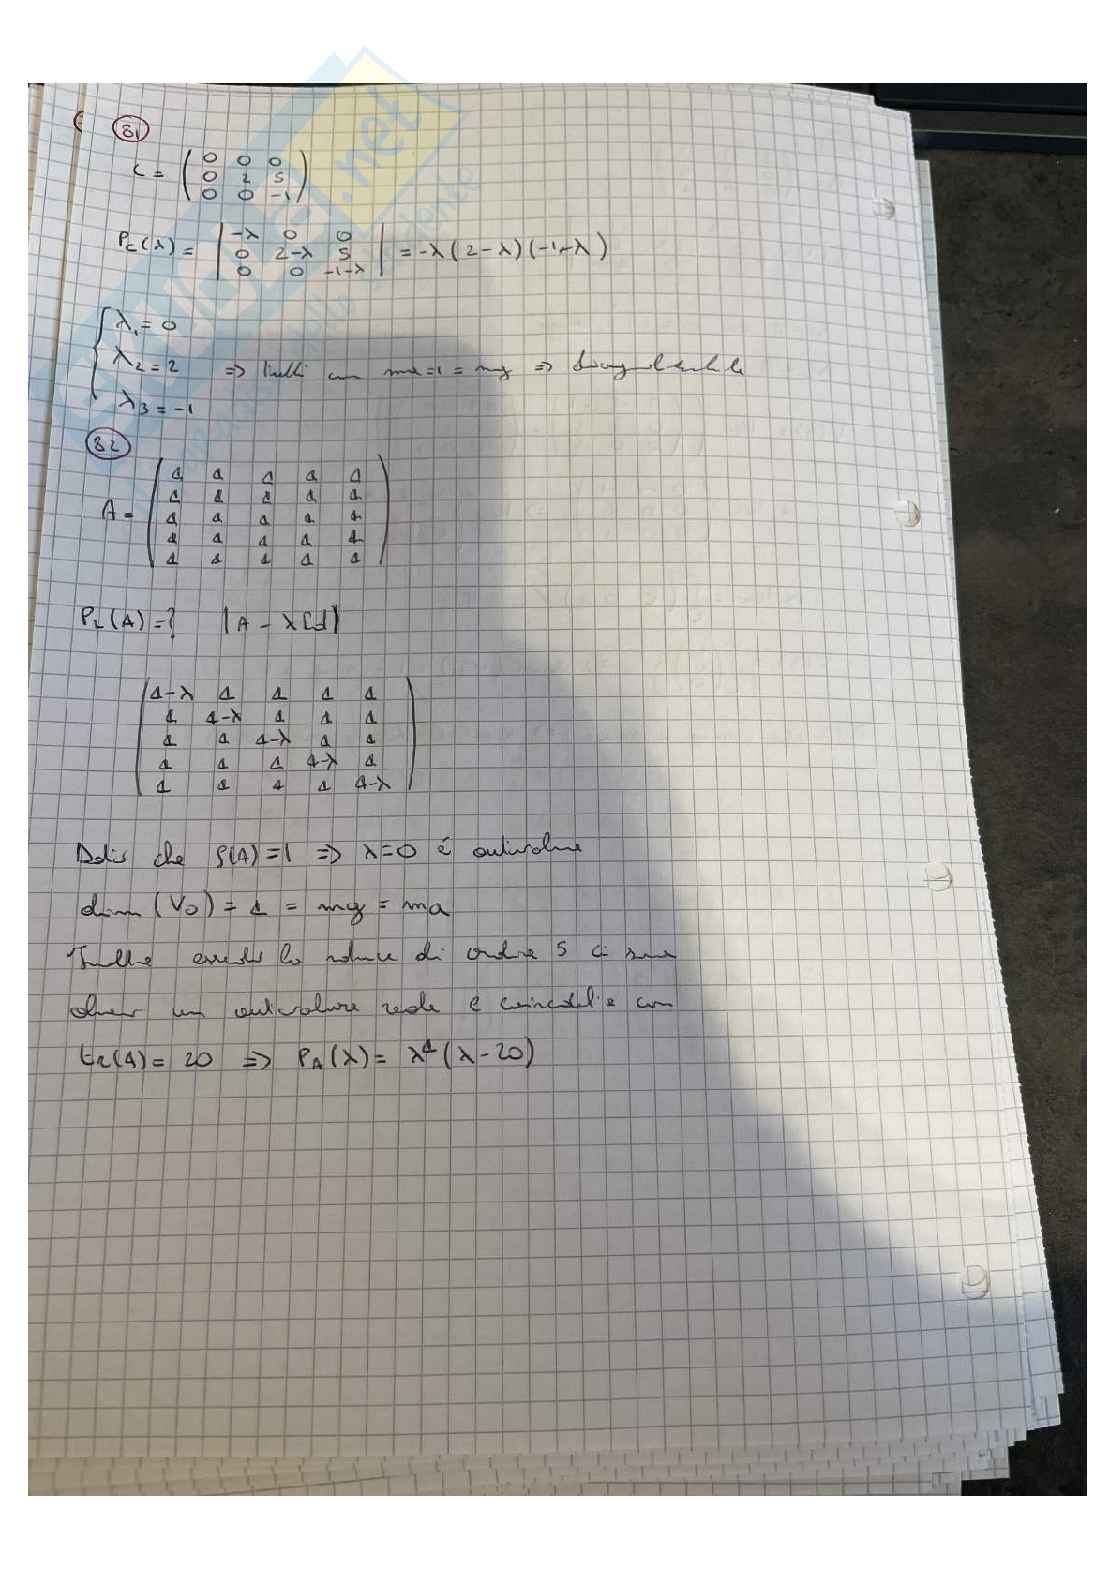 81
C = ( 0 0 0
0 2 5
0 0 -1 )
P_C(λ) = | -λ 0 0
0 2-λ 5
0 0 -1-λ | = -λ(2-λ)(-1-λ)
{ λ₁ = 0
λ₂ = 2 => tutti con ma=1=mg => diagonalizzabile
λ₃ = -1
82
A = ( 4 4 4 4 4
4 4 4 4 4
4 4 4 4 4
4 4 4 4 4
4 4 4 4 4 )
P_L(A) = ? |A - λId|
| 4-λ 4 4 4 4
4 4-λ 4 4 4
4 4 4-λ 4 4
4 4 4 4-λ 4
4 4 4 4 4-λ |
Dato che ρ(A)=1 => λ=0 è autovalore
dim(V₀) = 4 = mg = ma
essendo la matrice di ordine 5 ci
un autovalore reale e con
tr(A) = 20 => P_A(λ) = λ⁴(λ-20)
.net